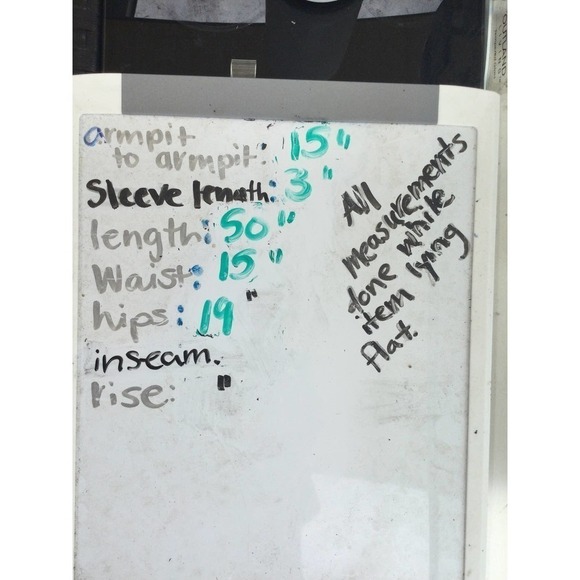 armpit
to armpit: 15"
Sleeve length: 3"
length: 50"
Waist: 15"
hips: 19"
inseam.
rise: "
All
measurements
done while
item lying
flat.